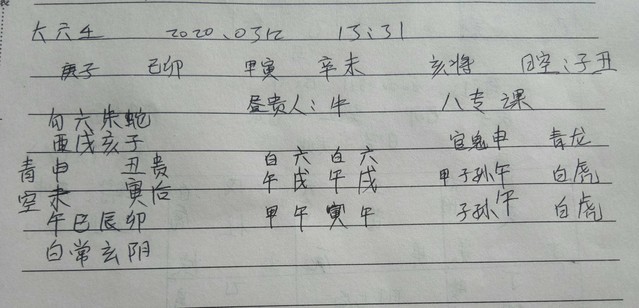 大六壬 2020.0312 13:31
庚子 己卯 甲寅 辛未 亥将 日空:子丑
昼贵人:牛 八专课
勾六朱蛇
酉戌亥子 官鬼申 青龙
青申 丑贵 白六白六
午戌午戌 甲子孙午 白虎
空未 寅后
午巳辰卯 甲午寅午 子孙午 白虎
白常玄阴